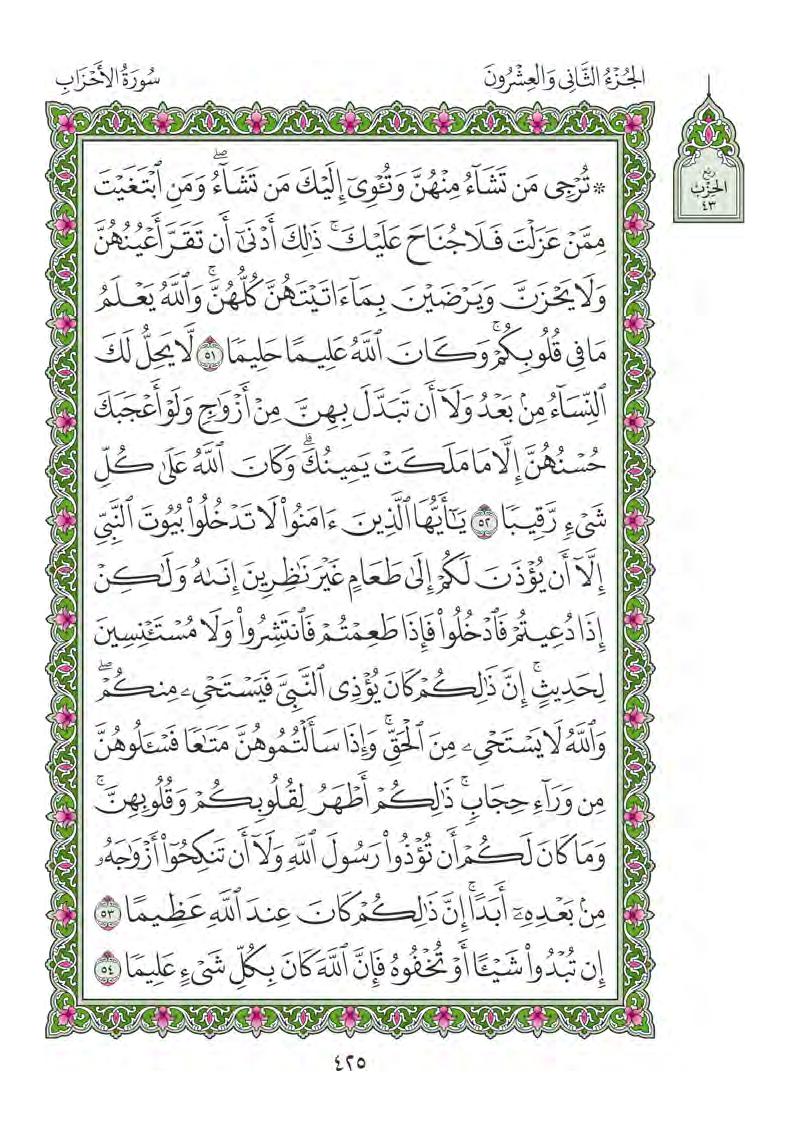 الجُزْءُ الثَّانِى وَالْعِشْرُونَ
سُورَةُ الأَحْزَابِ
ربع
الحِزْبُ
٤٣
* تُرْجِى مَن تَشَآءُ مِنْهُنَّ وَتُـْٔوِىٓ إِلَيْكَ مَن تَشَآءُۖ وَمَنِ ٱبْتَغَيْتَ
مِمَّنْ عَزَلْتَ فَلَا جُنَاحَ عَلَيْكَۚ ذَٰلِكَ أَدْنَىٰٓ أَن تَقَرَّ أَعْيُنُهُنَّ
وَلَا يَحْزَنَّ وَيَرْضَيْنَ بِمَآ ءَاتَيْتَهُنَّ كُلُّهُنَّۚ وَٱللَّهُ يَعْلَمُ
مَا فِى قُلُوبِكُمْۚ وَكَانَ ٱللَّهُ عَلِيمًا حَلِيمًا ٥١ لَّا يَحِلُّ لَكَ
ٱلنِّسَآءُ مِنۢ بَعْدُ وَلَآ أَن تَبَدَّلَ بِهِنَّ مِنْ أَزْوَٰجٍ وَلَوْ أَعْجَبَكَ
حُسْنُهُنَّ إِلَّا مَا مَلَكَتْ يَمِينُكَۗ وَكَانَ ٱللَّهُ عَلَىٰ كُلِّ
شَىْءٍ رَّقِيبًا ٥٢ يَٰٓأَيُّهَا ٱلَّذِينَ ءَامَنُوا۟ لَا تَدْخُلُوا۟ بُيُوتَ ٱلنَّبِىِّ
إِلَّآ أَن يُؤْذَنَ لَكُمْ إِلَىٰ طَعَامٍ غَيْرَ نَٰظِرِينَ إِنَىٰهُ وَلَٰكِنْ
إِذَا دُعِيتُمْ فَٱدْخُلُوا۟ فَإِذَا طَعِمْتُمْ فَٱنتَشِرُوا۟ وَلَا مُسْتَـْٔنِسِينَ
لِحَدِيثٍۚ إِنَّ ذَٰلِكُمْ كَانَ يُؤْذِى ٱلنَّبِىَّ فَيَسْتَحْىِۦ مِنكُمْۖ
وَٱللَّهُ لَا يَسْتَحْىِۦ مِنَ ٱلْحَقِّۚ وَإِذَا سَأَلْتُمُوهُنَّ مَتَٰعًا فَسْـَٔلُوهُنَّ
مِن وَرَآءِ حِجَابٍۚ ذَٰلِكُمْ أَطْهَرُ لِقُلُوبِكُمْ وَقُلُوبِهِنَّۚ
وَمَا كَانَ لَكُمْ أَن تُؤْذُوا۟ رَسُولَ ٱللَّهِ وَلَآ أَن تَنكِحُوٓا۟ أَزْوَٰجَهُۥ
مِنۢ بَعْدِهِۦٓ أَبَدًاۚ إِنَّ ذَٰلِكُمْ كَانَ عِندَ ٱللَّهِ عَظِيمًا ٥٣
إِن تُبْدُوا۟ شَيْـًٔا أَوْ تُخْفُوهُ فَإِنَّ ٱللَّهَ كَانَ بِكُلِّ شَىْءٍ عَلِيمًا ٥٤
٤٢٥